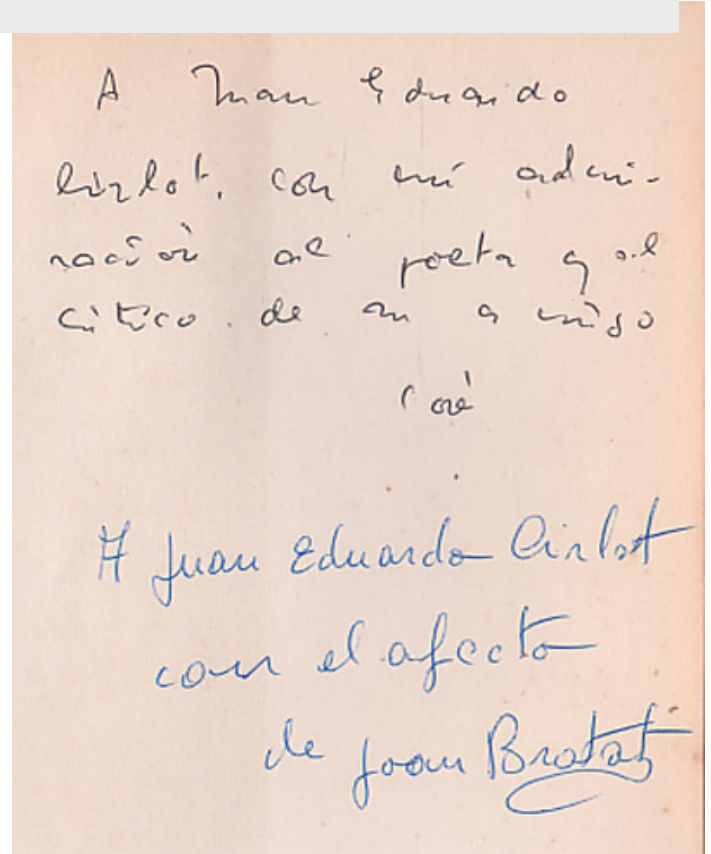 A Juan Eduardo
Cirlot, con mi admi-
ración al poeta y al
crítico de su amigo
A Juan Eduardo Cirlot
con el afecto
de Joan Brotat